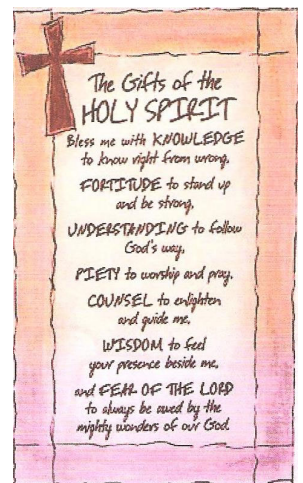 The Gifts of the
HOLY SPIRIT
Bless me with KNOWLEDGE
to know right from wrong,
FORTITUDE to stand up
and be strong,
UNDERSTANDING to follow
God's way,
PIETY to worship and pray.
COUNSEL to enlighten
and guide me,
WISDOM to feel
your presence beside me,
and FEAR OF THE LORD
to always be awed by the
mighty wonders of our God.